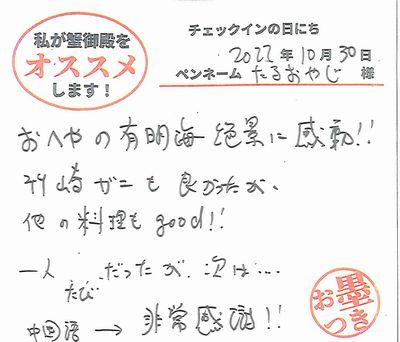 私が蟹御殿を
オススメ
します！
チェックインの日にち
2022年10月30日
ペンネーム たるおやじ 様
おへやの有明海絶景に感動!!
竹崎ガニも良かったが、
他の料理もgood!!
一人たび だったが 次は…
中国語 → 非常感謝!!
お墨つき